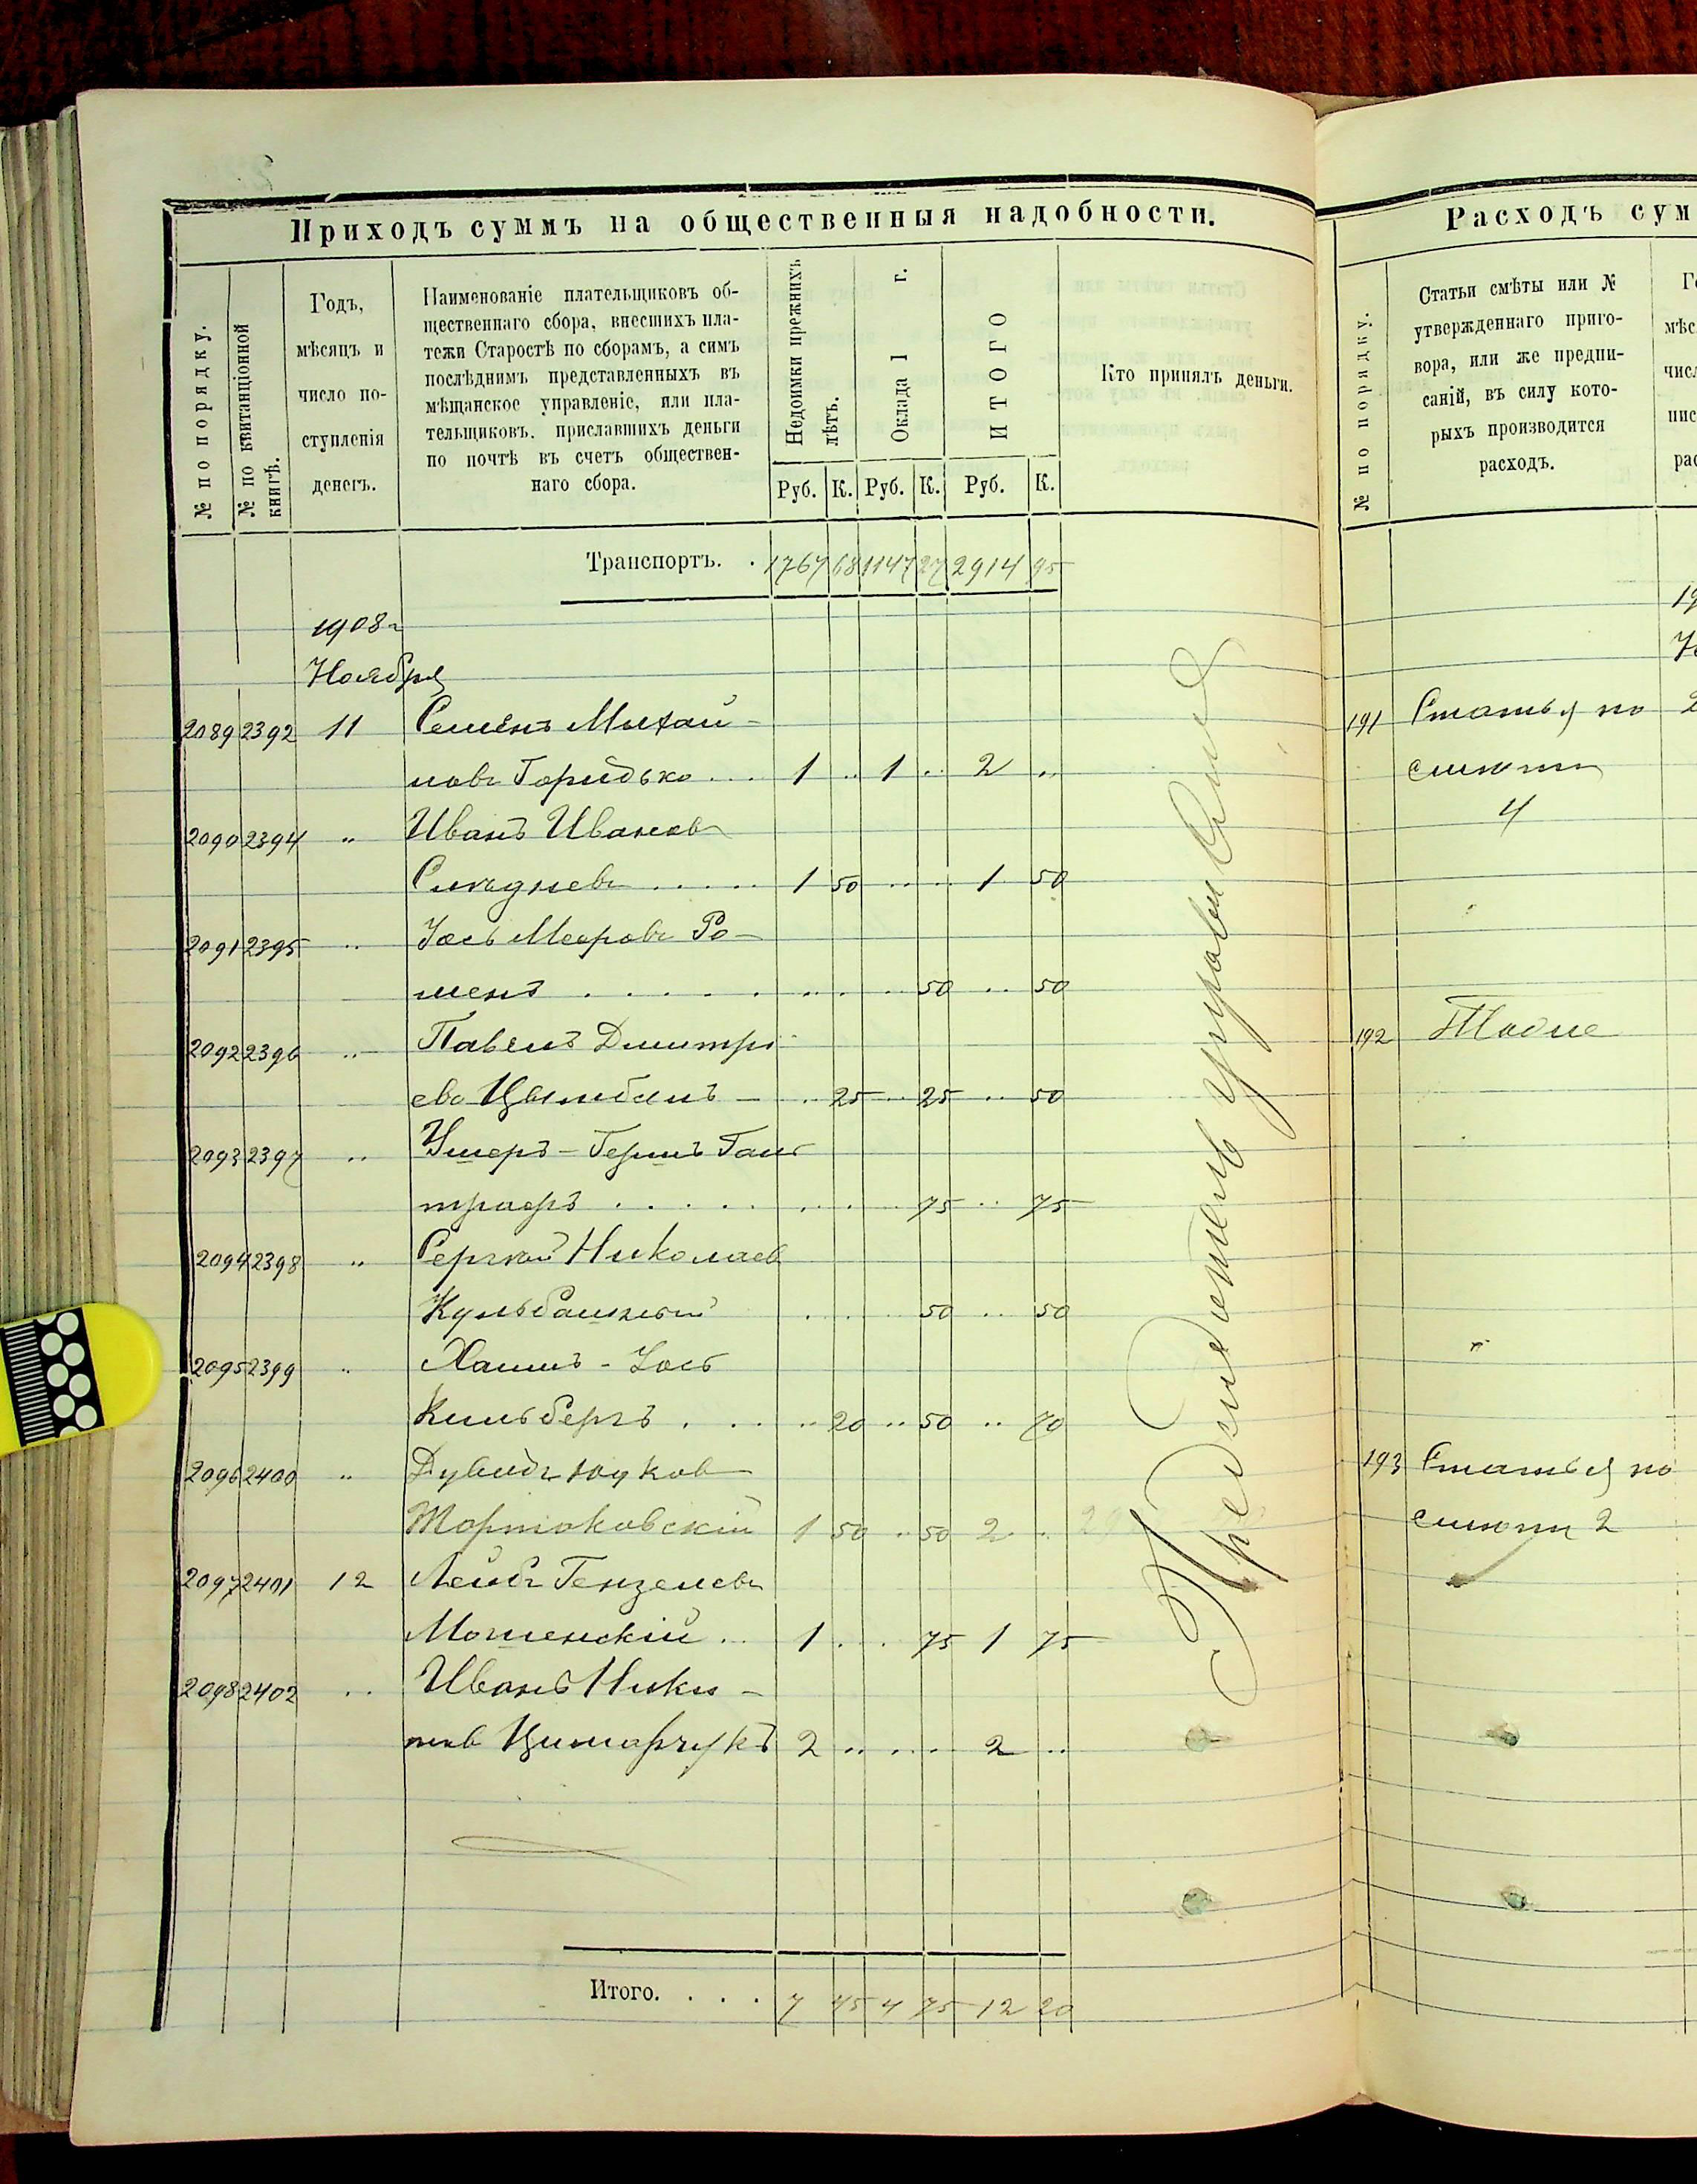 Приходъ суммъ на общественныя надобности.
№ по порядку.
№ по квитанціонной книгѣ.
Годъ,
мѣсяцъ и
число по-
ступленія
денегъ.
Наименованіе плательщиковъ об-
щественнаго сбора, внесшихъ пла-
тежи Старостѣ по сборамъ, а симъ
послѣднимъ представленныхъ въ
мѣщанское управленіе, или пла-
тельщиковъ. приславшихъ деньги
по почтѣ въ счетъ обществен-
наго сбора.
Недоимки прежнихъ
лѣтъ.
Оклада 1 г.
ИТОГО
Руб. К. Руб. К. Руб. К.
Кто принялъ деньги.
Транспортъ. . 1767 68 1147 27 2914 95
1908 г
Ноября
2089 2392 11 Семенъ Михай-
ловъ Горидько ... 1 .. 1 .. 2 ..
2090 2394 " Иванъ Ивановъ
1 50 .. .. 1 50
2091 2395 " Іось Меоровъ Ро-
менъ . . . . . 50 .. 50
2092 2396 " Павелъ Дмитрі-
евъ Цымбалъ - .. 25 .. 25 .. 50
2093 2397 " Ушеръ-Гершъ Галь
траеръ . . . . . 75 .. 75
2094 2398 " Сергѣй Николаев
Кульбашный . . . 50 .. 50
2095 2399 " Хаимъ-Іось
Кильбергъ . . . .. 20 .. 50 .. 70
2096 2400 " Дувидъ
Жортоковскій 1 50 .. 50 2 ..
2097 2401 12 Лейбъ Гензелевъ
Могиенскій .. 1 . . 75 1 75
2098 2402 " Иванъ Ники-
2 .. .. .. 2 ..
Предсѣдатель управы
Итого. . . . 7 45 4 75 12 20
Расходъ сум
№ по порядку.
Статьи смѣты или №
утвержденнаго приго-
вора, или же предпи-
саній, въ силу кото-
рыхъ производится
расходъ.
191 Статья по
смѣты
4
192 Тоже
193 Статья по
смѣты 2